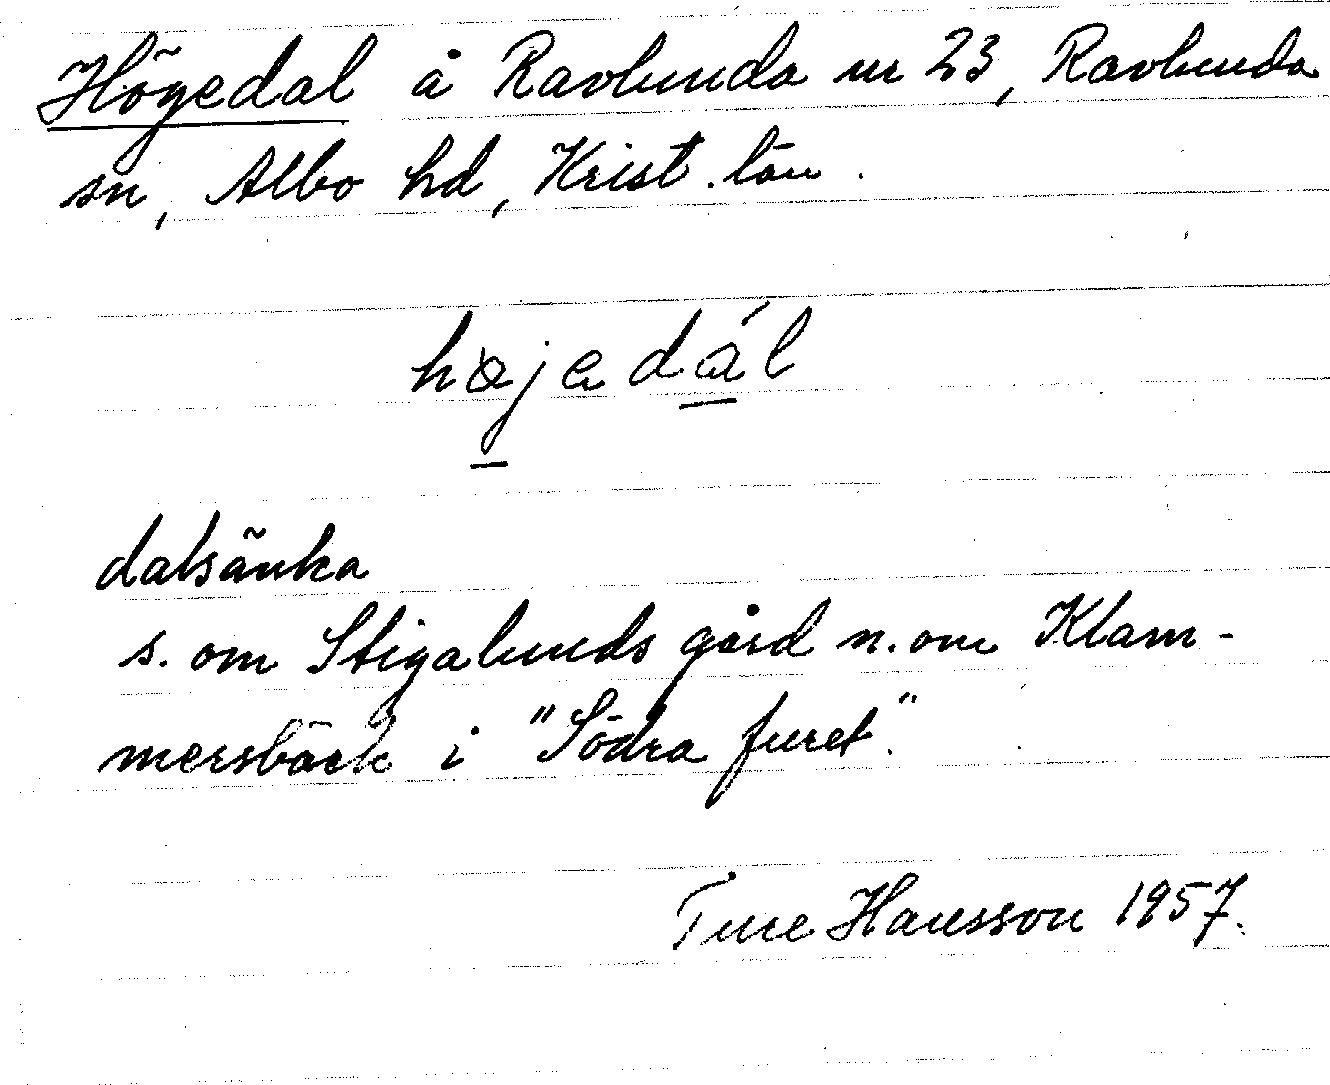 Högedal å Ravlunda nr 23, Ravlunda
sn, Albo hd, Krist. län.
höjedál
dalsänka
s. om Stigalunds gård n. om Klam-
mersbäck i "Södra furet".
Ture Hansson 1957.